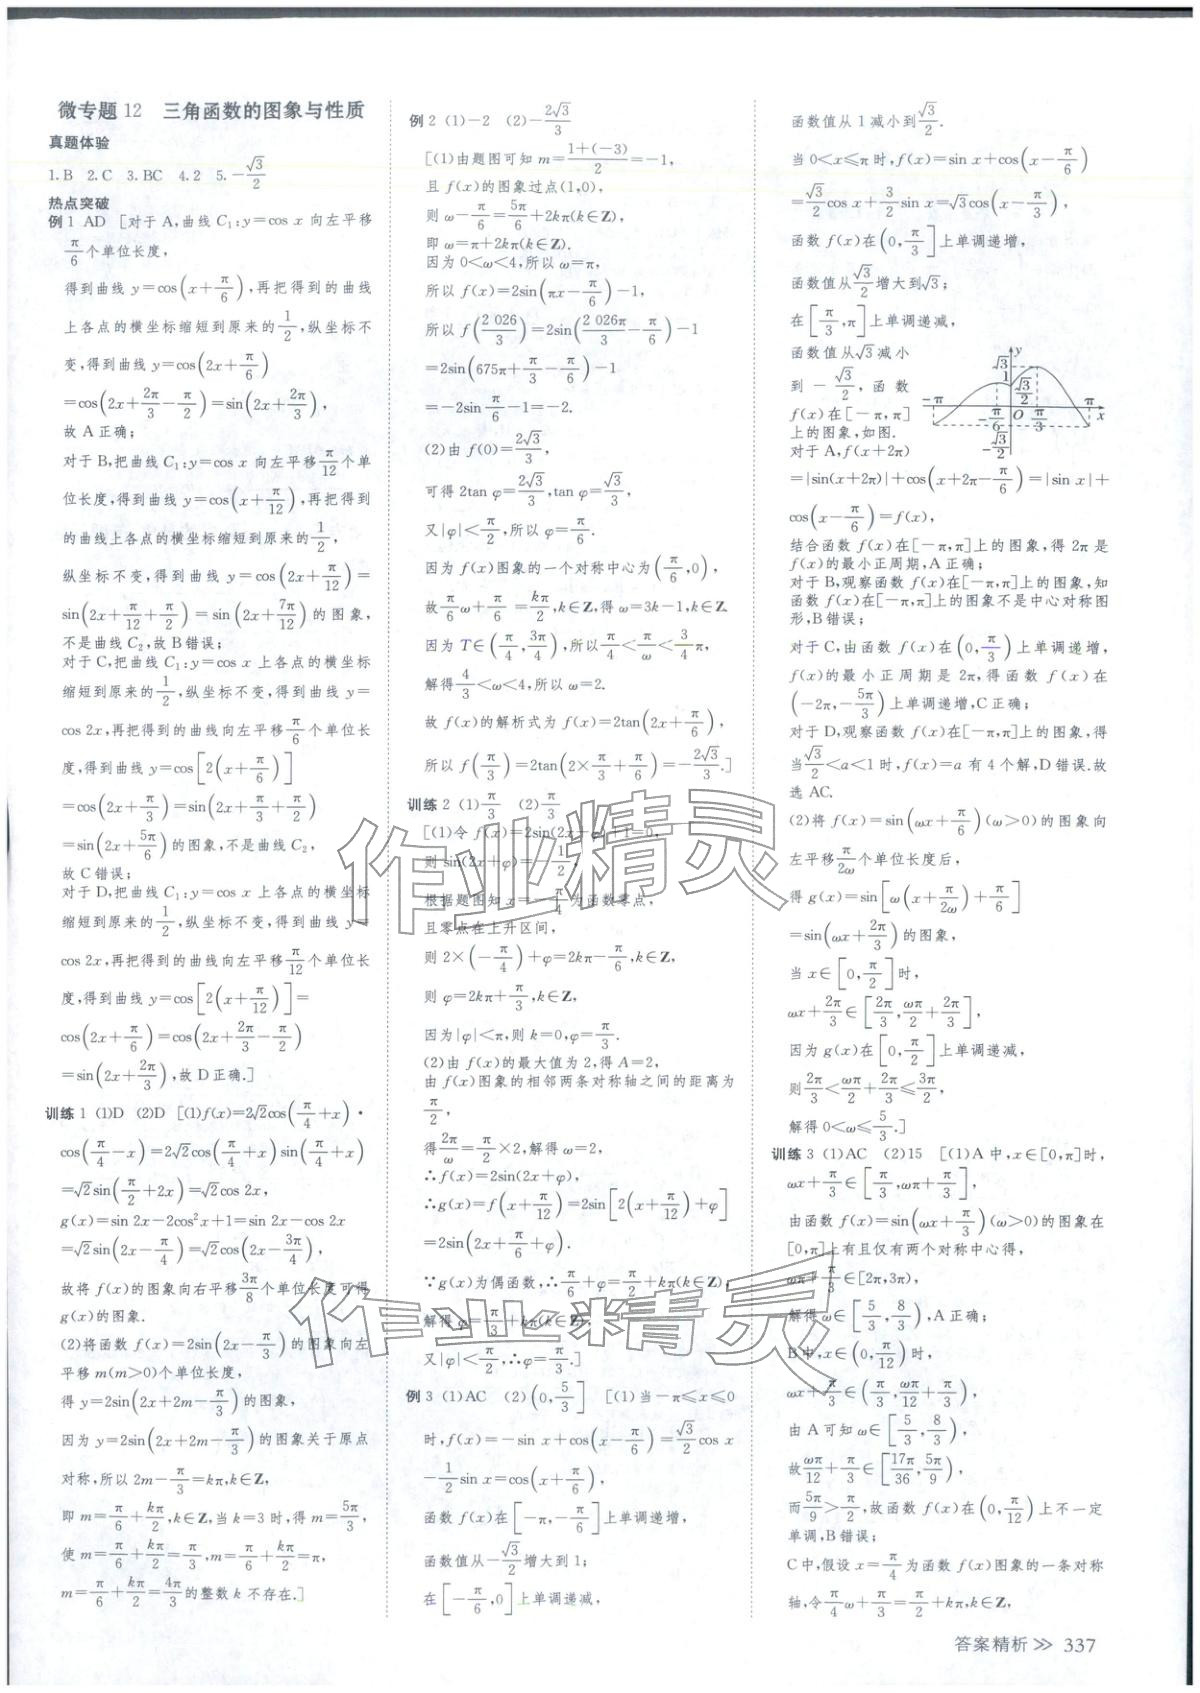 微专题 12　三角函数的图象与性质
真题体验
1.B 2.C 3.BC 4.2 5.-√3/2
热点突破
例 1 AD [对于 A,曲线 C₁:y=cos x 向左平移
π/6 个单位长度,
得到曲线 y=cos(x+π/6),再把得到的曲线
上各点的横坐标缩短到原来的1/2,纵坐标不
变,得到曲线 y=cos(2x+π/6)
=cos(2x+2π/3-π/2)=sin(2x+2π/3),
故 A 正确;
对于 B,把曲线 C₁:y=cos x 向左平移π/12个单
位长度,得到曲线 y=cos(x+π/12),再把得到
的曲线上各点的横坐标缩短到原来的1/2,
纵坐标不变,得到曲线 y=cos(2x+π/12)=
sin(2x+π/12+π/2)=sin(2x+7π/12)的图象,
不是曲线 C₂,故 B 错误;
对于 C,把曲线 C₁:y=cos x 上各点的横坐标
缩短到原来的1/2,纵坐标不变,得到曲线 y=
cos 2x,再把得到的曲线向左平移π/6个单位长
度,得到曲线 y=cos[2(x+π/6)]
=cos(2x+π/3)=sin(2x+π/3+π/2)
=sin(2x+5π/6)的图象,不是曲线 C₂,
故 C 错误;
对于 D,把曲线 C₁:y=cos x 上各点的横坐标
缩短到原来的1/2,纵坐标不变,得到曲线 y=
cos 2x,再把得到的曲线向左平移π/12个单位长
度,得到曲线 y=cos[2(x+π/12)]=
cos(2x+π/6)=cos(2x+2π/3-π/2)
=sin(2x+2π/3),故 D 正确.]
训练 1 (1)D (2)D [(1)f(x)=2√2cos(π/4+x)·
cos(π/4-x)=2√2cos(π/4+x)sin(π/4+x)
=√2sin(π/2+2x)=√2cos 2x,
g(x)=sin 2x-2cos²x+1=sin 2x-cos 2x
=√2sin(2x-π/4)=√2cos(2x-3π/4),
故将 f(x)的图象向右平移3π/8个单位长度可得
g(x)的图象.
(2)将函数 f(x)=2sin(2x-π/3)的图象向左
平移 m(m>0)个单位长度,
得 y=2sin(2x+2m-π/3)的图象,
因为 y=2sin(2x+2m-π/3)的图象关于原点
对称,所以 2m-π/3=kπ,k∈Z,
即 m=π/6+kπ/2,k∈Z,当 k=3 时,得 m=5π/3,
使 m=π/6+kπ/2=π/3,m=π/6+kπ/2=π,
m=π/6+kπ/2=4π/3的整数 k 不存在.]
例 2 (1)-2 (2)-2√3/3
[(1)由题图可知 m=1+(-3)/2=-1,
且 f(x)的图象过点(1,0),
则 ω-π/6=5π/6+2kπ(k∈Z),
即 ω=π+2kπ(k∈Z).
因为 0<ω<4,所以 ω=π,
所以 f(x)=2sin(πx-π/6)-1,
所以 f(2 026/3)=2sin(2 026π/3-π/6)-1
=2sin(675π+π/3-π/6)-1
=-2sin π/6-1=-2.
(2)由 f(0)=2√3/3,
可得 2tan φ=2√3/3,tan φ=√3/3,
又|φ|<π/2,所以 φ=π/6.
因为 f(x)图象的一个对称中心为(π/6,0),
故π/6ω+π/6=kπ/2,k∈Z,得 ω=3k-1,k∈Z.
因为 T∈(π/4,3π/4),所以π/4<π/ω<3/4π,
解得4/3<ω<4,所以 ω=2.
故 f(x)的解析式为 f(x)=2tan(2x+π/6),
所以 f(π/3)=2tan(2×π/3+π/6)=-2√3/3.]
训练 2 (1)π/3 (2)π/3
[(1)令 f(x)=2sin(2x+φ)+1=0,
则 sin(2x+φ)=-1/2,
根据题图知 x=-π/4为函数零点,
且零点在上升区间,
则 2×(-π/4)+φ=2kπ-π/6,k∈Z,
则 φ=2kπ+π/3,k∈Z,
因为|φ|<π,则 k=0,φ=π/3.
(2)由 f(x)的最大值为 2,得 A=2,
由 f(x)图象的相邻两条对称轴之间的距离为
π/2,
得2π/ω=π/2×2,解得 ω=2,
∴f(x)=2sin(2x+φ),
∴g(x)=f(x+π/12)=2sin[2(x+π/12)+φ]
=2sin(2x+π/6+φ).
∵g(x)为偶函数,∴π/6+φ=π/2+kπ(k∈Z),
解得 φ=π/3+kπ(k∈Z),
又|φ|<π/2,∴φ=π/3.]
例 3 (1)AC (2)(0,5/3] [(1)当-π≤x≤0
时,f(x)=-sin x+cos(x-π/6)=√3/2cos x
-1/2sin x=cos(x+π/6),
函数 f(x)在[-π,-π/6]上单调递增,
函数值从-√3/2增大到 1;
在[-π/6,0]上单调递减,
函数值从 1 减小到√3/2.
当 0<x≤π 时,f(x)=sin x+cos(x-π/6)
=√3/2cos x+3/2sin x=√3cos(x-π/3),
函数 f(x)在(0,π/3]上单调递增,
函数值从√3/2增大到√3;
在[π/3,π]上单调递减,
函数值从√3减小
到 -√3/2,函 数
f(x)在[-π,π]
上的图象,如图.
y
√3
1
√3/2
-π
-π/6
O
π/3
π
x
-√3/2
对于 A,f(x+2π)
=|sin(x+2π)|+cos(x+2π-π/6)=|sin x|+
cos(x-π/6)=f(x),
结合函数 f(x)在[-π,π]上的图象,得 2π是
f(x)的最小正周期,A 正确;
对于 B,观察函数 f(x)在[-π,π]上的图象,知
函数 f(x)在[-π,π]上的图象不是中心对称图
形,B 错误;
对于 C,由函数 f(x)在(0,π/3)上单调递增,
f(x)的最小正周期是 2π,得函数 f(x)在
(-2π,-5π/3)上单调递增,C 正确;
对于 D,观察函数 f(x)在[-π,π]上的图象,得
当√3/2<a<1 时,f(x)=a 有 4 个解,D 错误.故
选 AC.
(2)将 f(x)=sin(ωx+π/6)(ω>0)的图象向
左平移π/2ω个单位长度后,
得 g(x)=sin[ω(x+π/2ω)+π/6]
=sin(ωx+2π/3)的图象,
当 x∈[0,π/2]时,
ωx+2π/3∈[2π/3,ωπ/2+2π/3],
因为 g(x)在[0,π/2]上单调递减,
则2π/3<ωπ/2+2π/3≤3π/2,
解得 0<ω≤5/3.]
训练 3 (1)AC (2)15 [(1)A 中,x∈[0,π]时,
ωx+π/3∈[π/3,ωπ+π/3],
由函数 f(x)=sin(ωx+π/3)(ω>0)的图象在
[0,π]上有且仅有两个对称中心得,
ωπ+π/3∈[2π,3π),
解得 ω∈[5/3,8/3),A 正确;
B 中,x∈(0,π/12)时,
ωx+π/3∈(π/3,ωπ/12+π/3),
由 A 可知 ω∈[5/3,8/3),
故ωπ/12+π/3∈[17π/36,5π/9),
而5π/9>π/2,故函数 f(x)在(0,π/12)上不一定
单调,B 错误;
C 中,假设 x=π/4为函数 f(x)图象的一条对称
轴,令π/4ω+π/3=π/2+kπ,k∈Z,
答案精析 ≫ 337
作业精灵
作业精灵